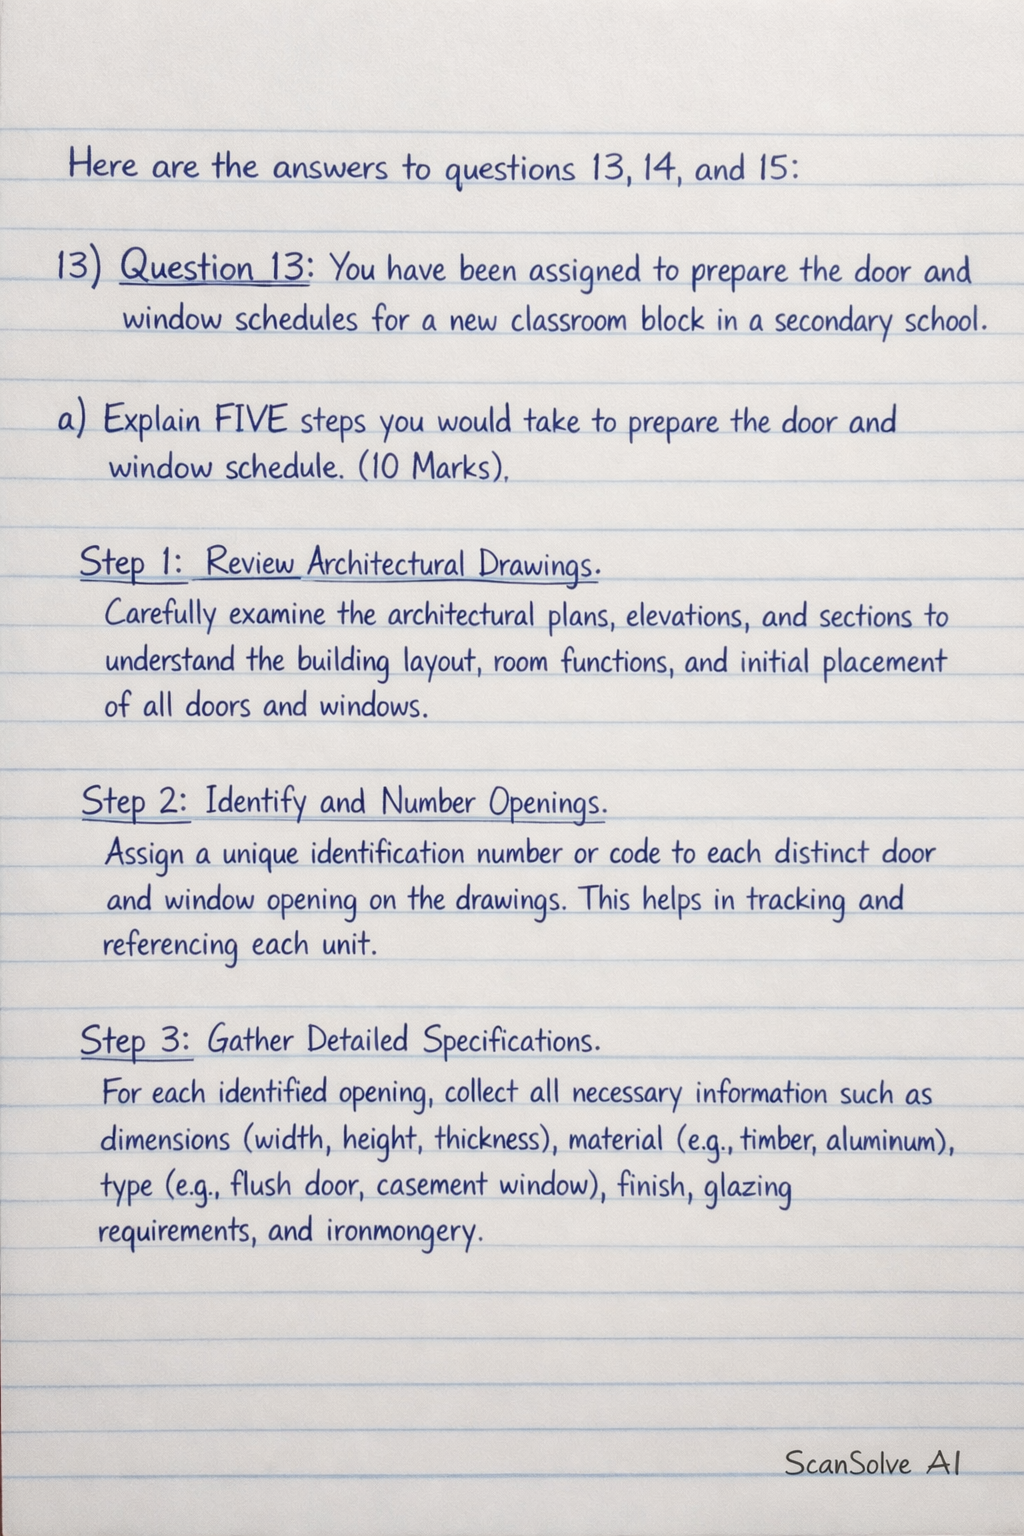 Here are the answers to questions 13, 14, and 15:
13) Question 13: You have been assigned to prepare the door and
window schedules for a new classroom block in a secondary school.
a) Explain FIVE steps you would take to prepare the door and
window schedule. (10 Marks).
Step 1: Review Architectural Drawings.
Carefully examine the architectural plans, elevations, and sections to
understand the building layout, room functions, and initial placement
of all doors and windows.
Step 2: Identify and Number Openings.
Assign a unique identification number or code to each distinct door
and window opening on the drawings. This helps in tracking and
referencing each unit.
Step 3: Gather Detailed Specifications.
For each identified opening, collect all necessary information such as
dimensions (width, height, thickness), material (e.g., timber, aluminum),
type (e.g., flush door, casement window), finish, glazing
requirements, and ironmongery.
ScanSolve AI